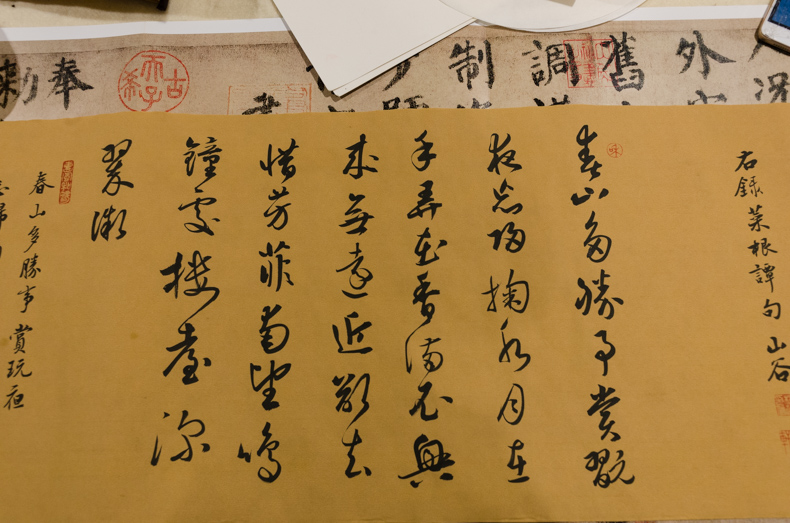 況
外
舊
調
制
奉
勅
古希天子
右錄菜根譚句 山谷
春山多勝事賞翫
夜忘歸掬水月在
手弄花香滿衣興
來無遠近欲去
惜芳菲南望鳴
鐘處樓臺深
翠微
春山多勝事 賞玩夜